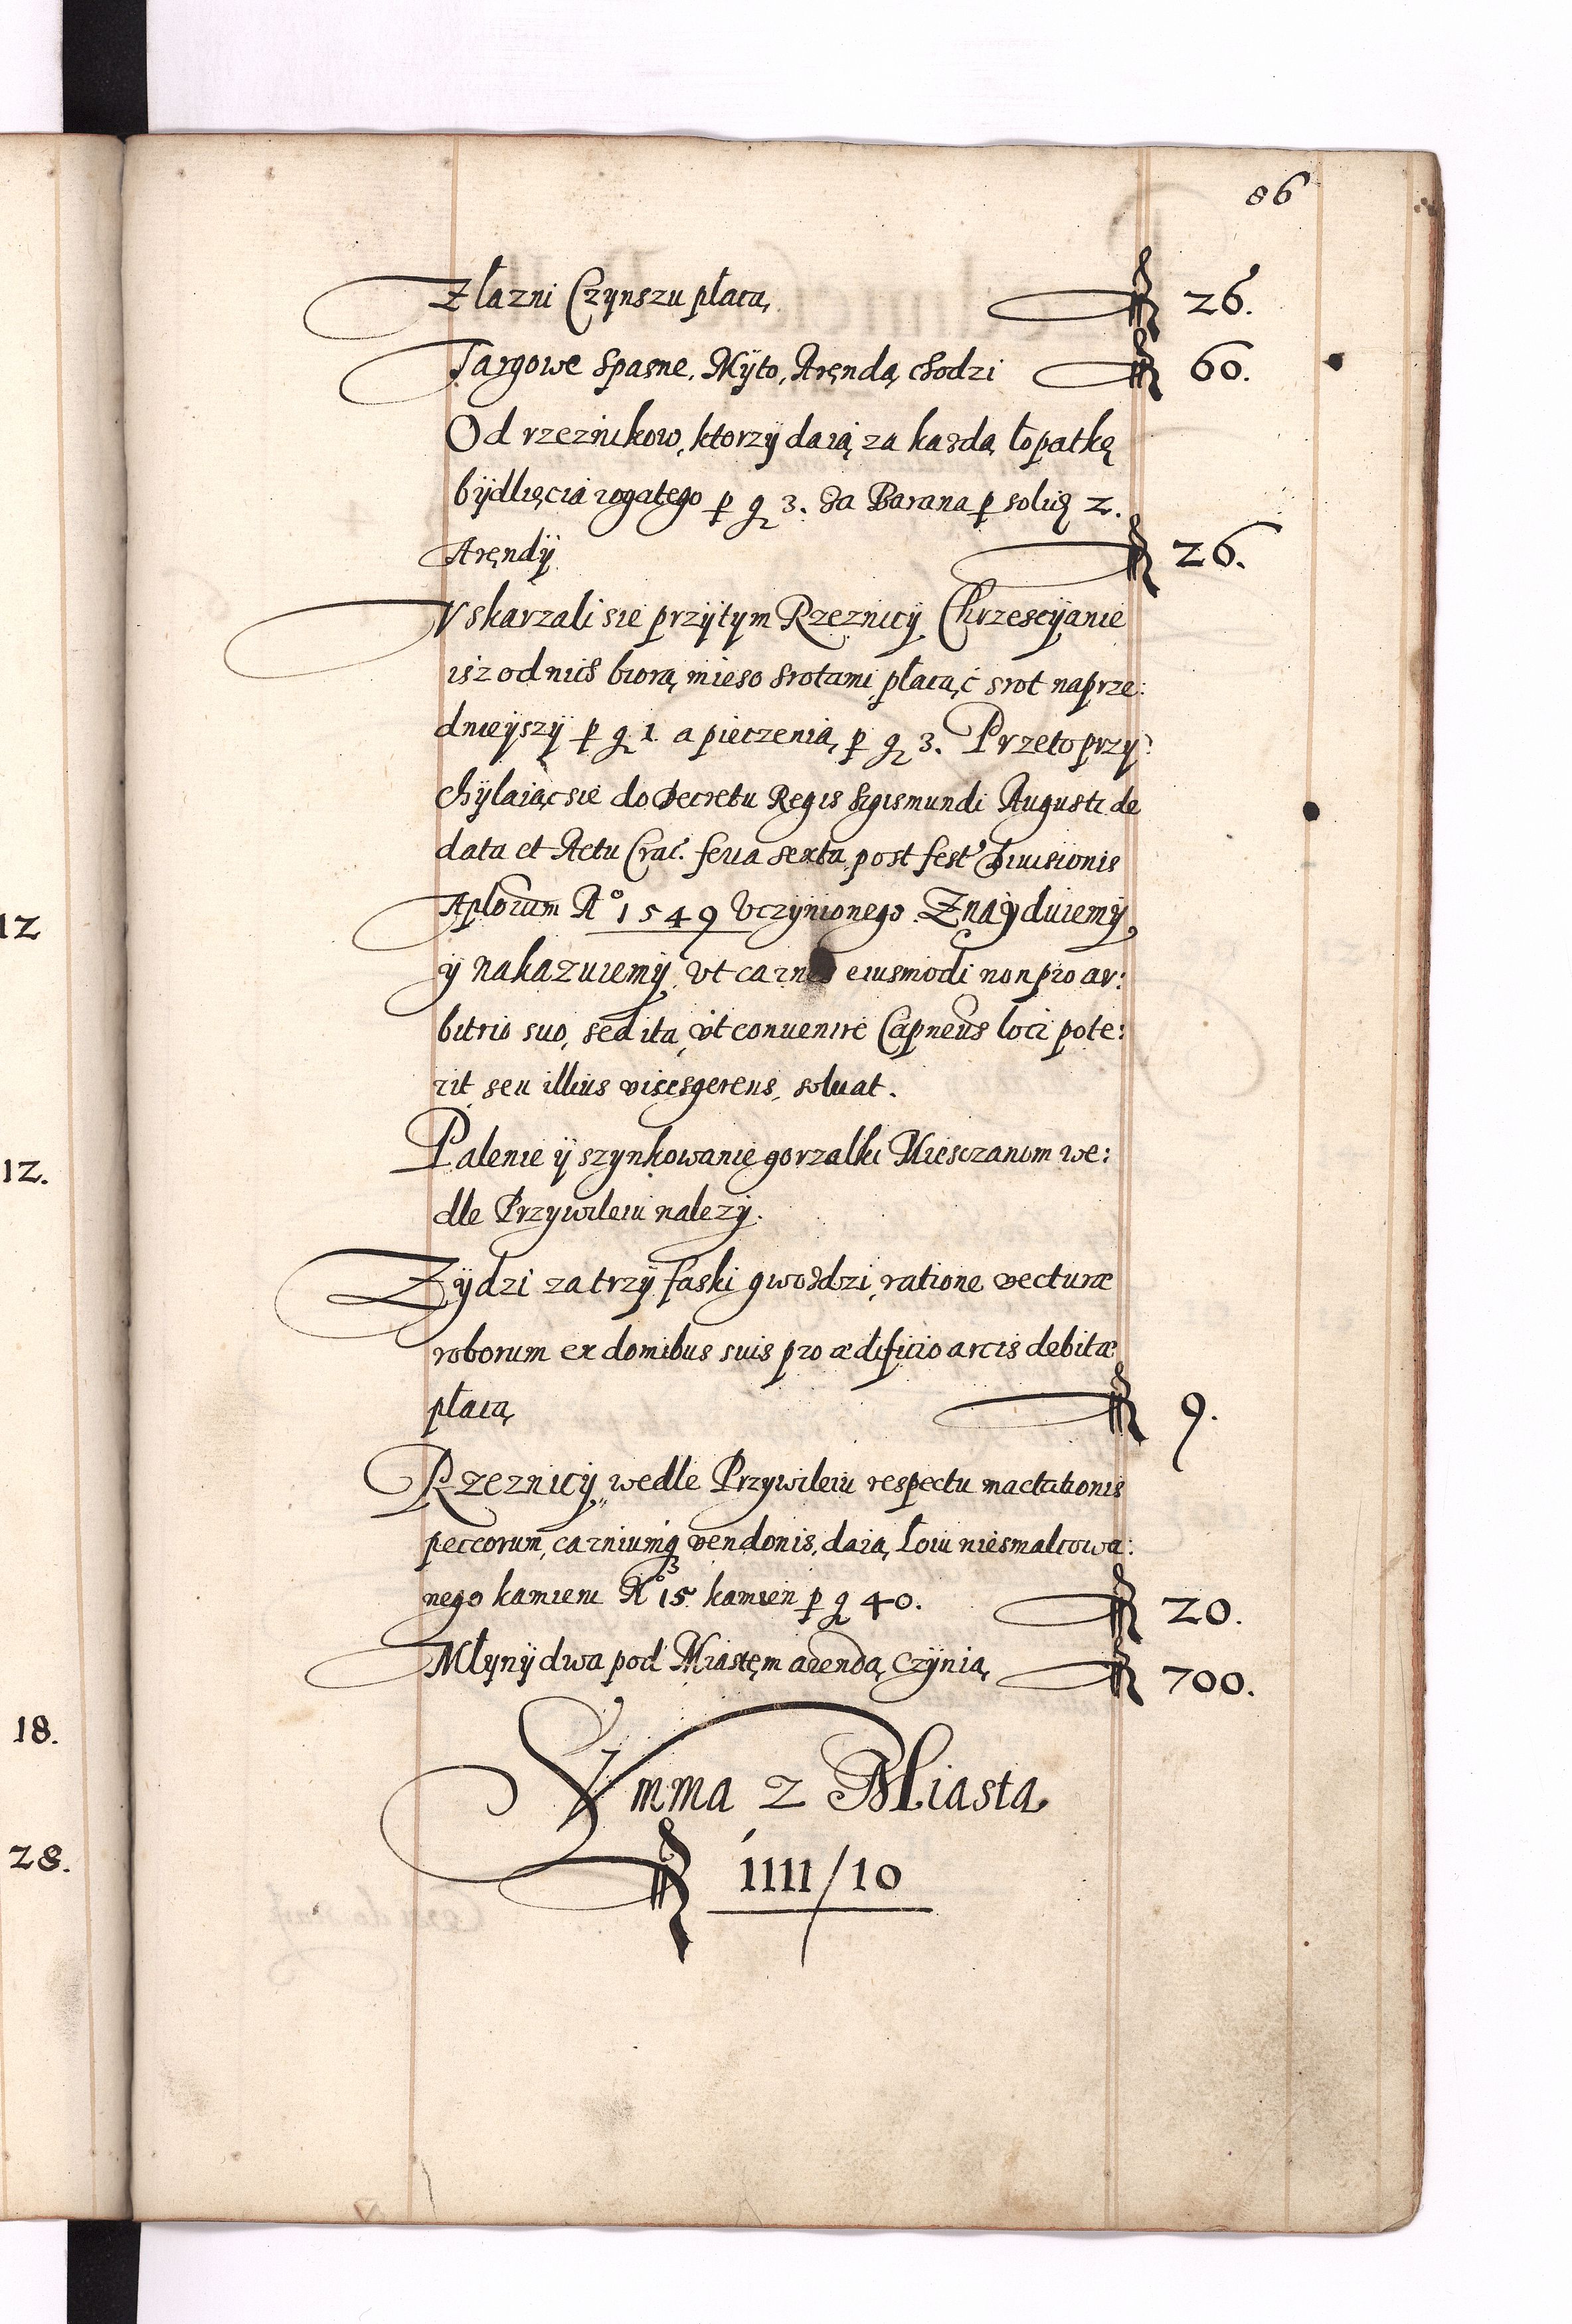 86
Z łazni Czynszu płacą, ƒ 26.
Targowe spasne, Myto, Arędą chodzi ƒ 60.
Od rzeznikow, ktorzy daią za kazdą łopatkę
bydlięcia rogatego p gr 3. Za Barana p solid 2.
Aręndy ƒ 26.
Vskarzali sie przytym Rzeznicy Chrzescyanie
isz od nich biorą mieso srotami płacąć srot naprze:
dnieyszy p gr 1. a pieczenią p gr 3. Przeto przy:
chylaiąc sie do Decretu Regis Sigismundi Augusti de
data et Actu Crac. feria sexta post fest' Diuisionis
Aplorum Ao 1549 Vczynionego. Znayduiemy
y nakazuiemy, Vt carnes eiusmodi non pro ar:
bitrio suo, sed ita, vt conuenire Capneus loci pote:
rit seu illius vicesgerens, soluat.
Palenie y szynkowanie gorzalki Miesczanom we:
dle Przywileiu nalezy.
Zydzi za trzy faski gwozdzi, ratione vecturæ
roborum ex domibus suis pro ædificio arcis debitæ
płacą ƒ 9.
Rzeznicy, wedle Przywileiu respectu mactationis
peccorum, carniumq3 vendonis, daią, Łoiu niesmalcowa:
nego kamieni No 15 kamien p gr 40. ƒ 20.
Młyny dwa pod Miastem arendą Czynią ƒ 700.
Summa z Miasta
ƒ 1111/10
12
12.
18.
28.